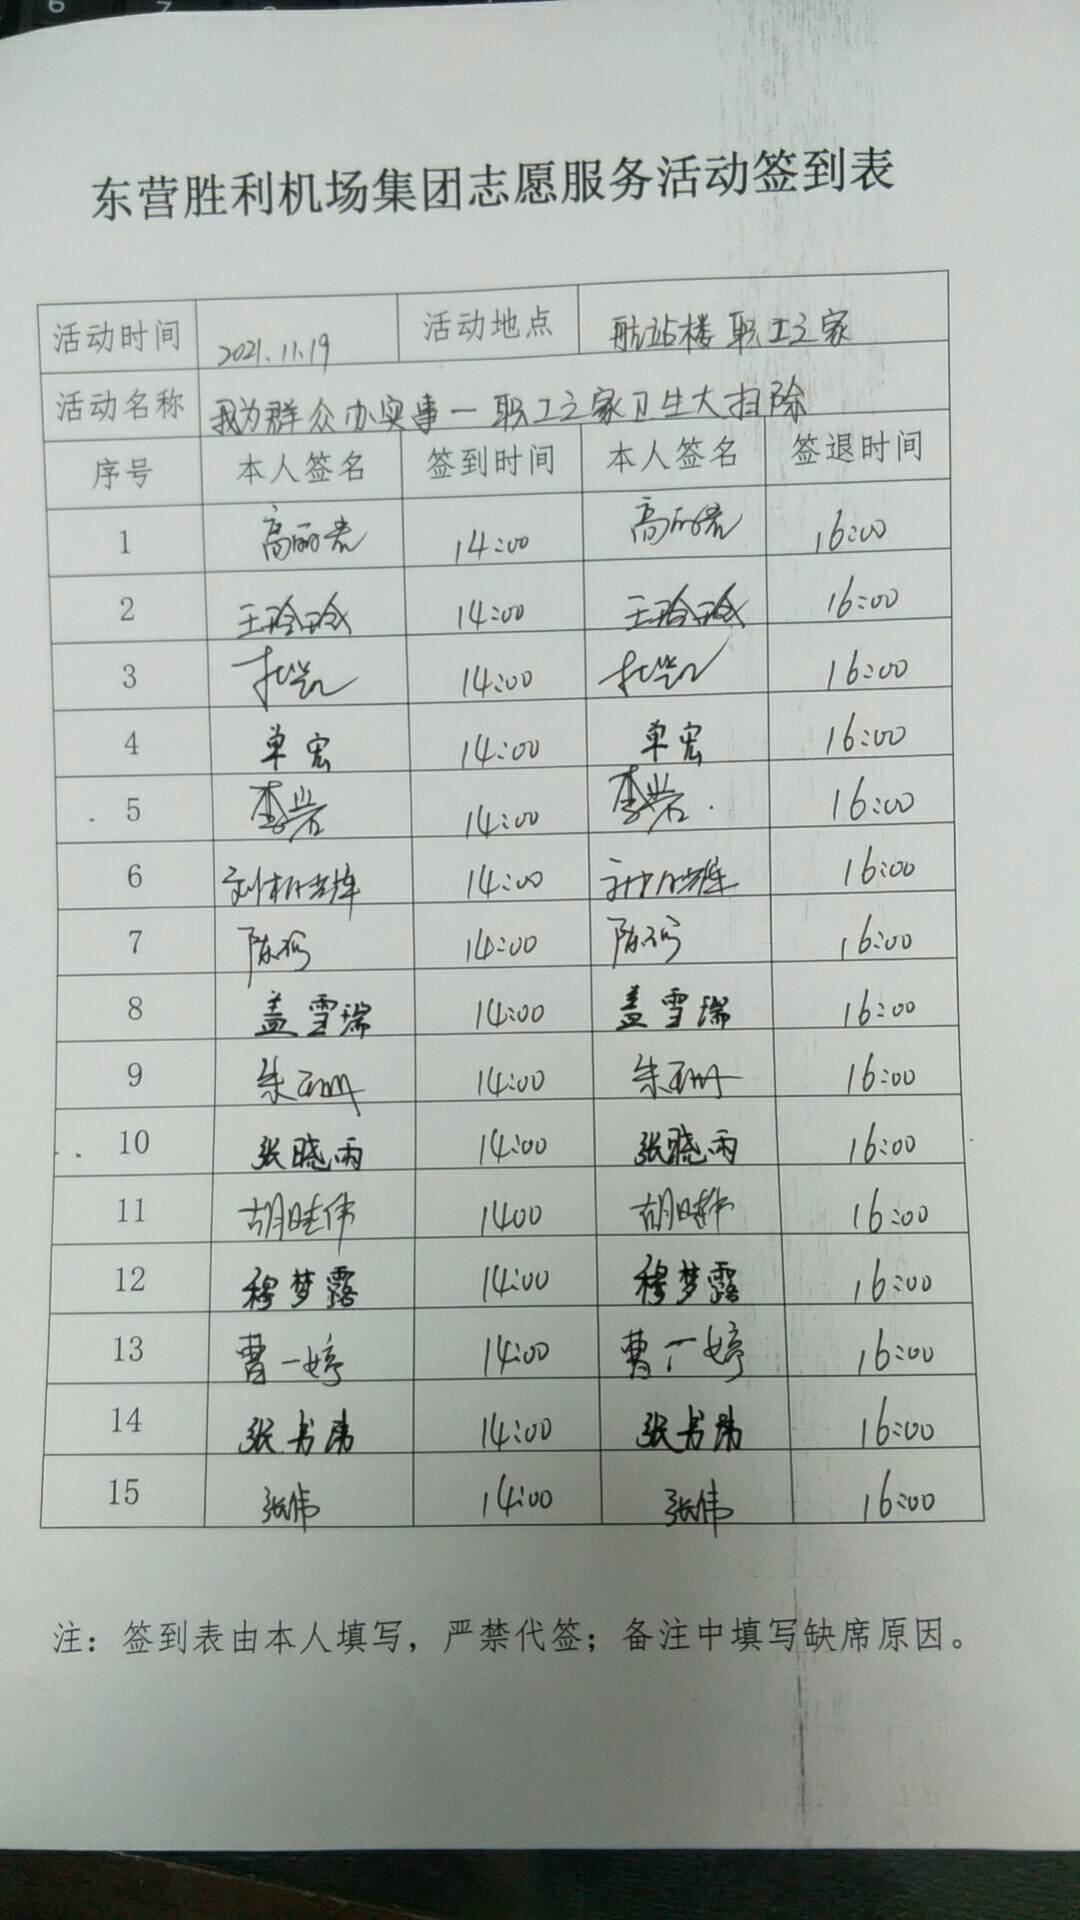 东营胜利机场集团志愿服务活动签到表
活动时间 2021.11.19 活动地点 航站楼 职工之家
活动名称 我为群众办实事一职工之家卫生大扫除
序号 本人签名 签到时间 本人签名 签退时间
1 14:00 16:00
2 王玲玲 14:00 王玲玲 16:00
3 14:00 16:00
4 单宏 14:00 单宏 16:00
5 李岩 14:00 李岩 16:00
6 14:00 16:00
7 14:00 16:00
8 盖雪瑞 14:00 盖雪瑞 16:00
9 朱珊 14:00 朱珊 16:00
10 张晓雨 14:00 张晓雨 16:00
11 1400 16:00
12 穆梦露 14:00 穆梦露 16:00
13 曹一婷 14:00 曹一婷 16:00
14 张书玮 14:00 张书玮 16:00
15 张伟 14:00 张伟 16:00
注：签到表由本人填写，严禁代签；备注中填写缺席原因。